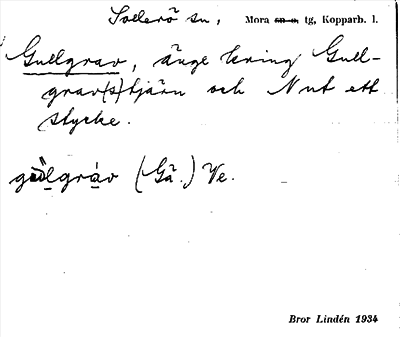 Sollerö sn, Mora sn o. tg, Kopparb. l.
Gullgrav, änge kring Gull-
grav(s)tjärn och N ut ett
stycke.
gùlgráv (Gä.) Ve.
Bror Lindén 1934